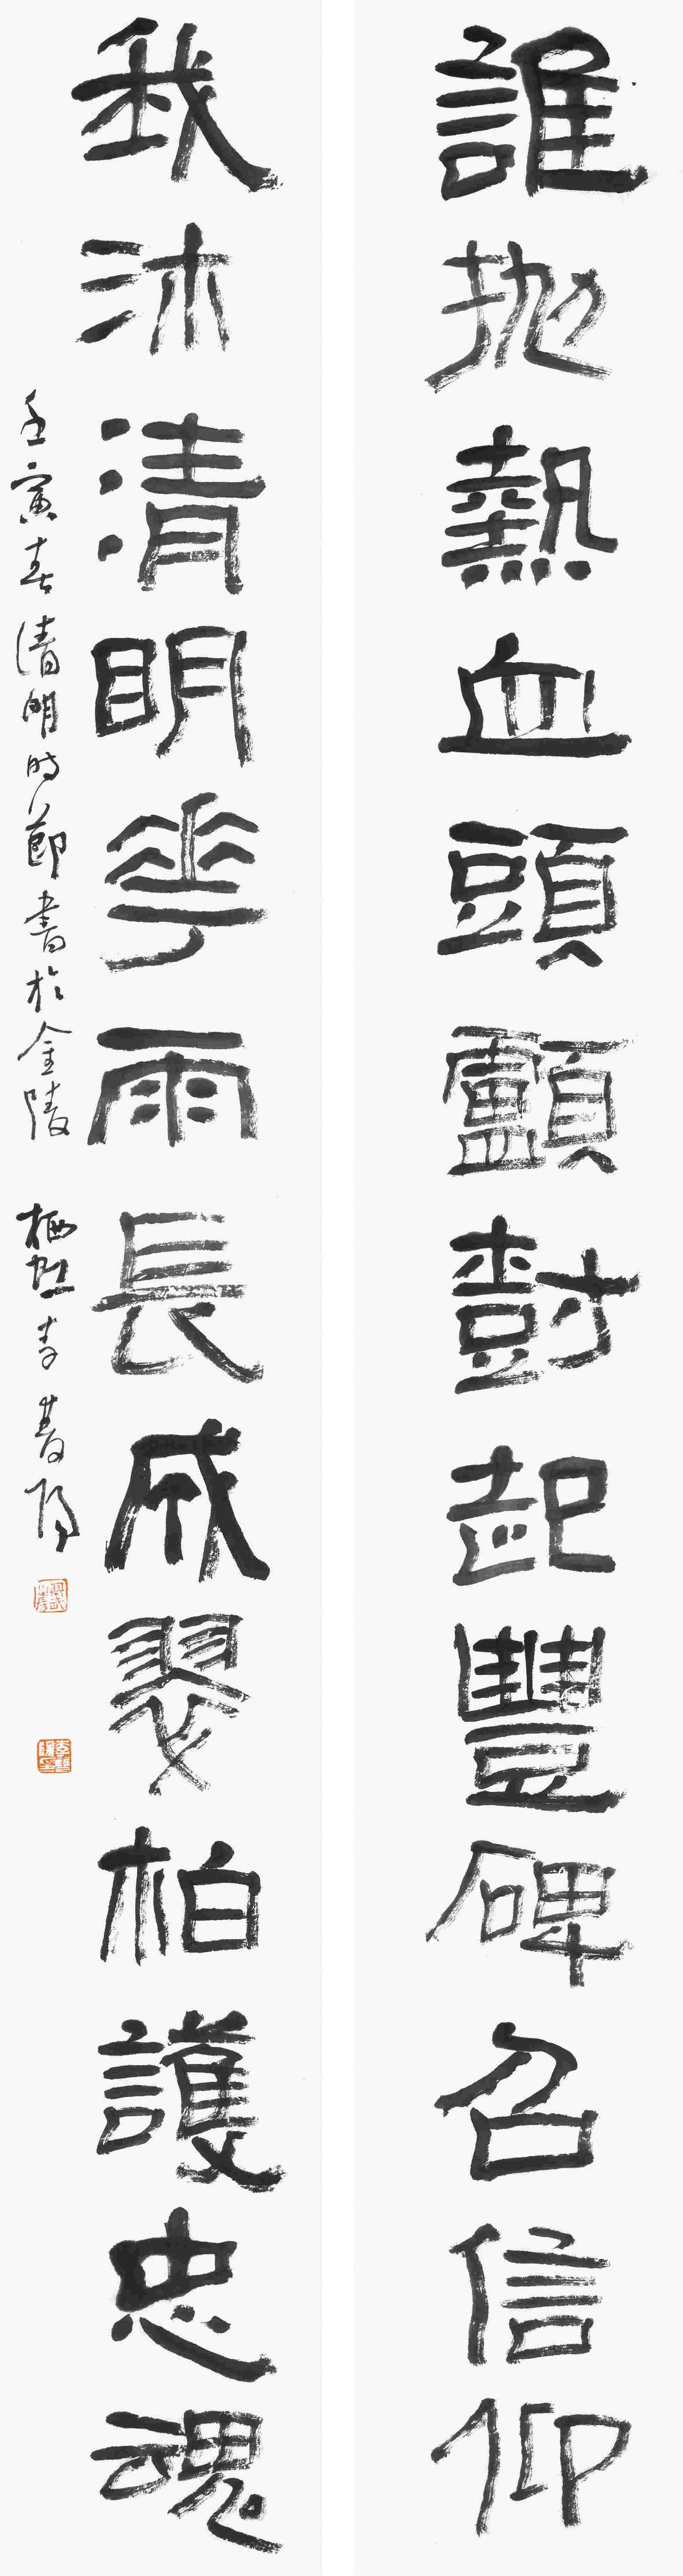 誰拋熱血頭顱尌起豐碑召信仰
我沐清明花雨長成翠柏護忠魂
壬寅春清明時節書於金陵